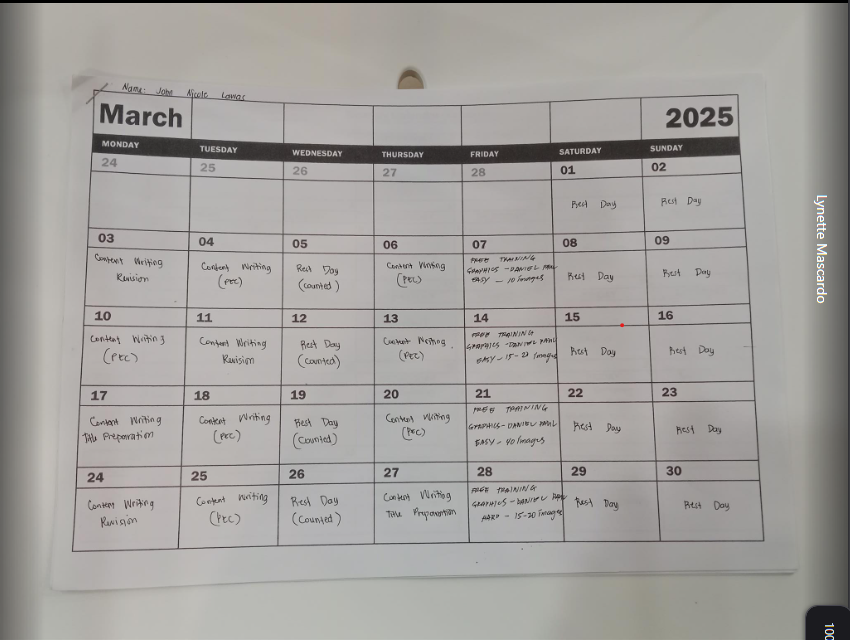 Name: John Nicole
March 2025
MONDAY TUESDAY WEDNESDAY THURSDAY FRIDAY SATURDAY SUNDAY
24 25 26 27 28 01 02
Rest Day
Rest Day
03 04 05 06 07 08 09
Content Writing
Revision
Content Writing
(PEC)
Rest Day
(counted)
Content Writing
(PEC)
FREE TRAINING
GRAPHICS - DANIEL PAUL
EASY - 10 Images
Rest Day
Rest Day
10 11 12 13 14 15 16
Content Writing
(PEC)
Content Writing
Revision
Rest Day
(Counted)
Content Writing
(PEC)
FREE TRAINING
GRAPHICS - DANIEL PAUL
EASY - 15-20 Images
Rest Day
Rest Day
17 18 19 20 21 22 23
Content Writing
Title Preparation
Content Writing
(PEC)
Rest Day
(Counted)
Content Writing
(PEC)
FREE TRAINING
GRAPHICS - DANIEL PAUL
EASY - 40 Images
Rest Day
Rest Day
24 25 26 27 28 29 30
Content Writing
Revision
Content Writing
(PEC)
Rest Day
(Counted)
Content Writing
Title Preparation
FREE TRAINING
GRAPHICS - DANIEL PAUL
HARD - 15-20 Images
Rest Day
Rest Day
Lynette Mascardo